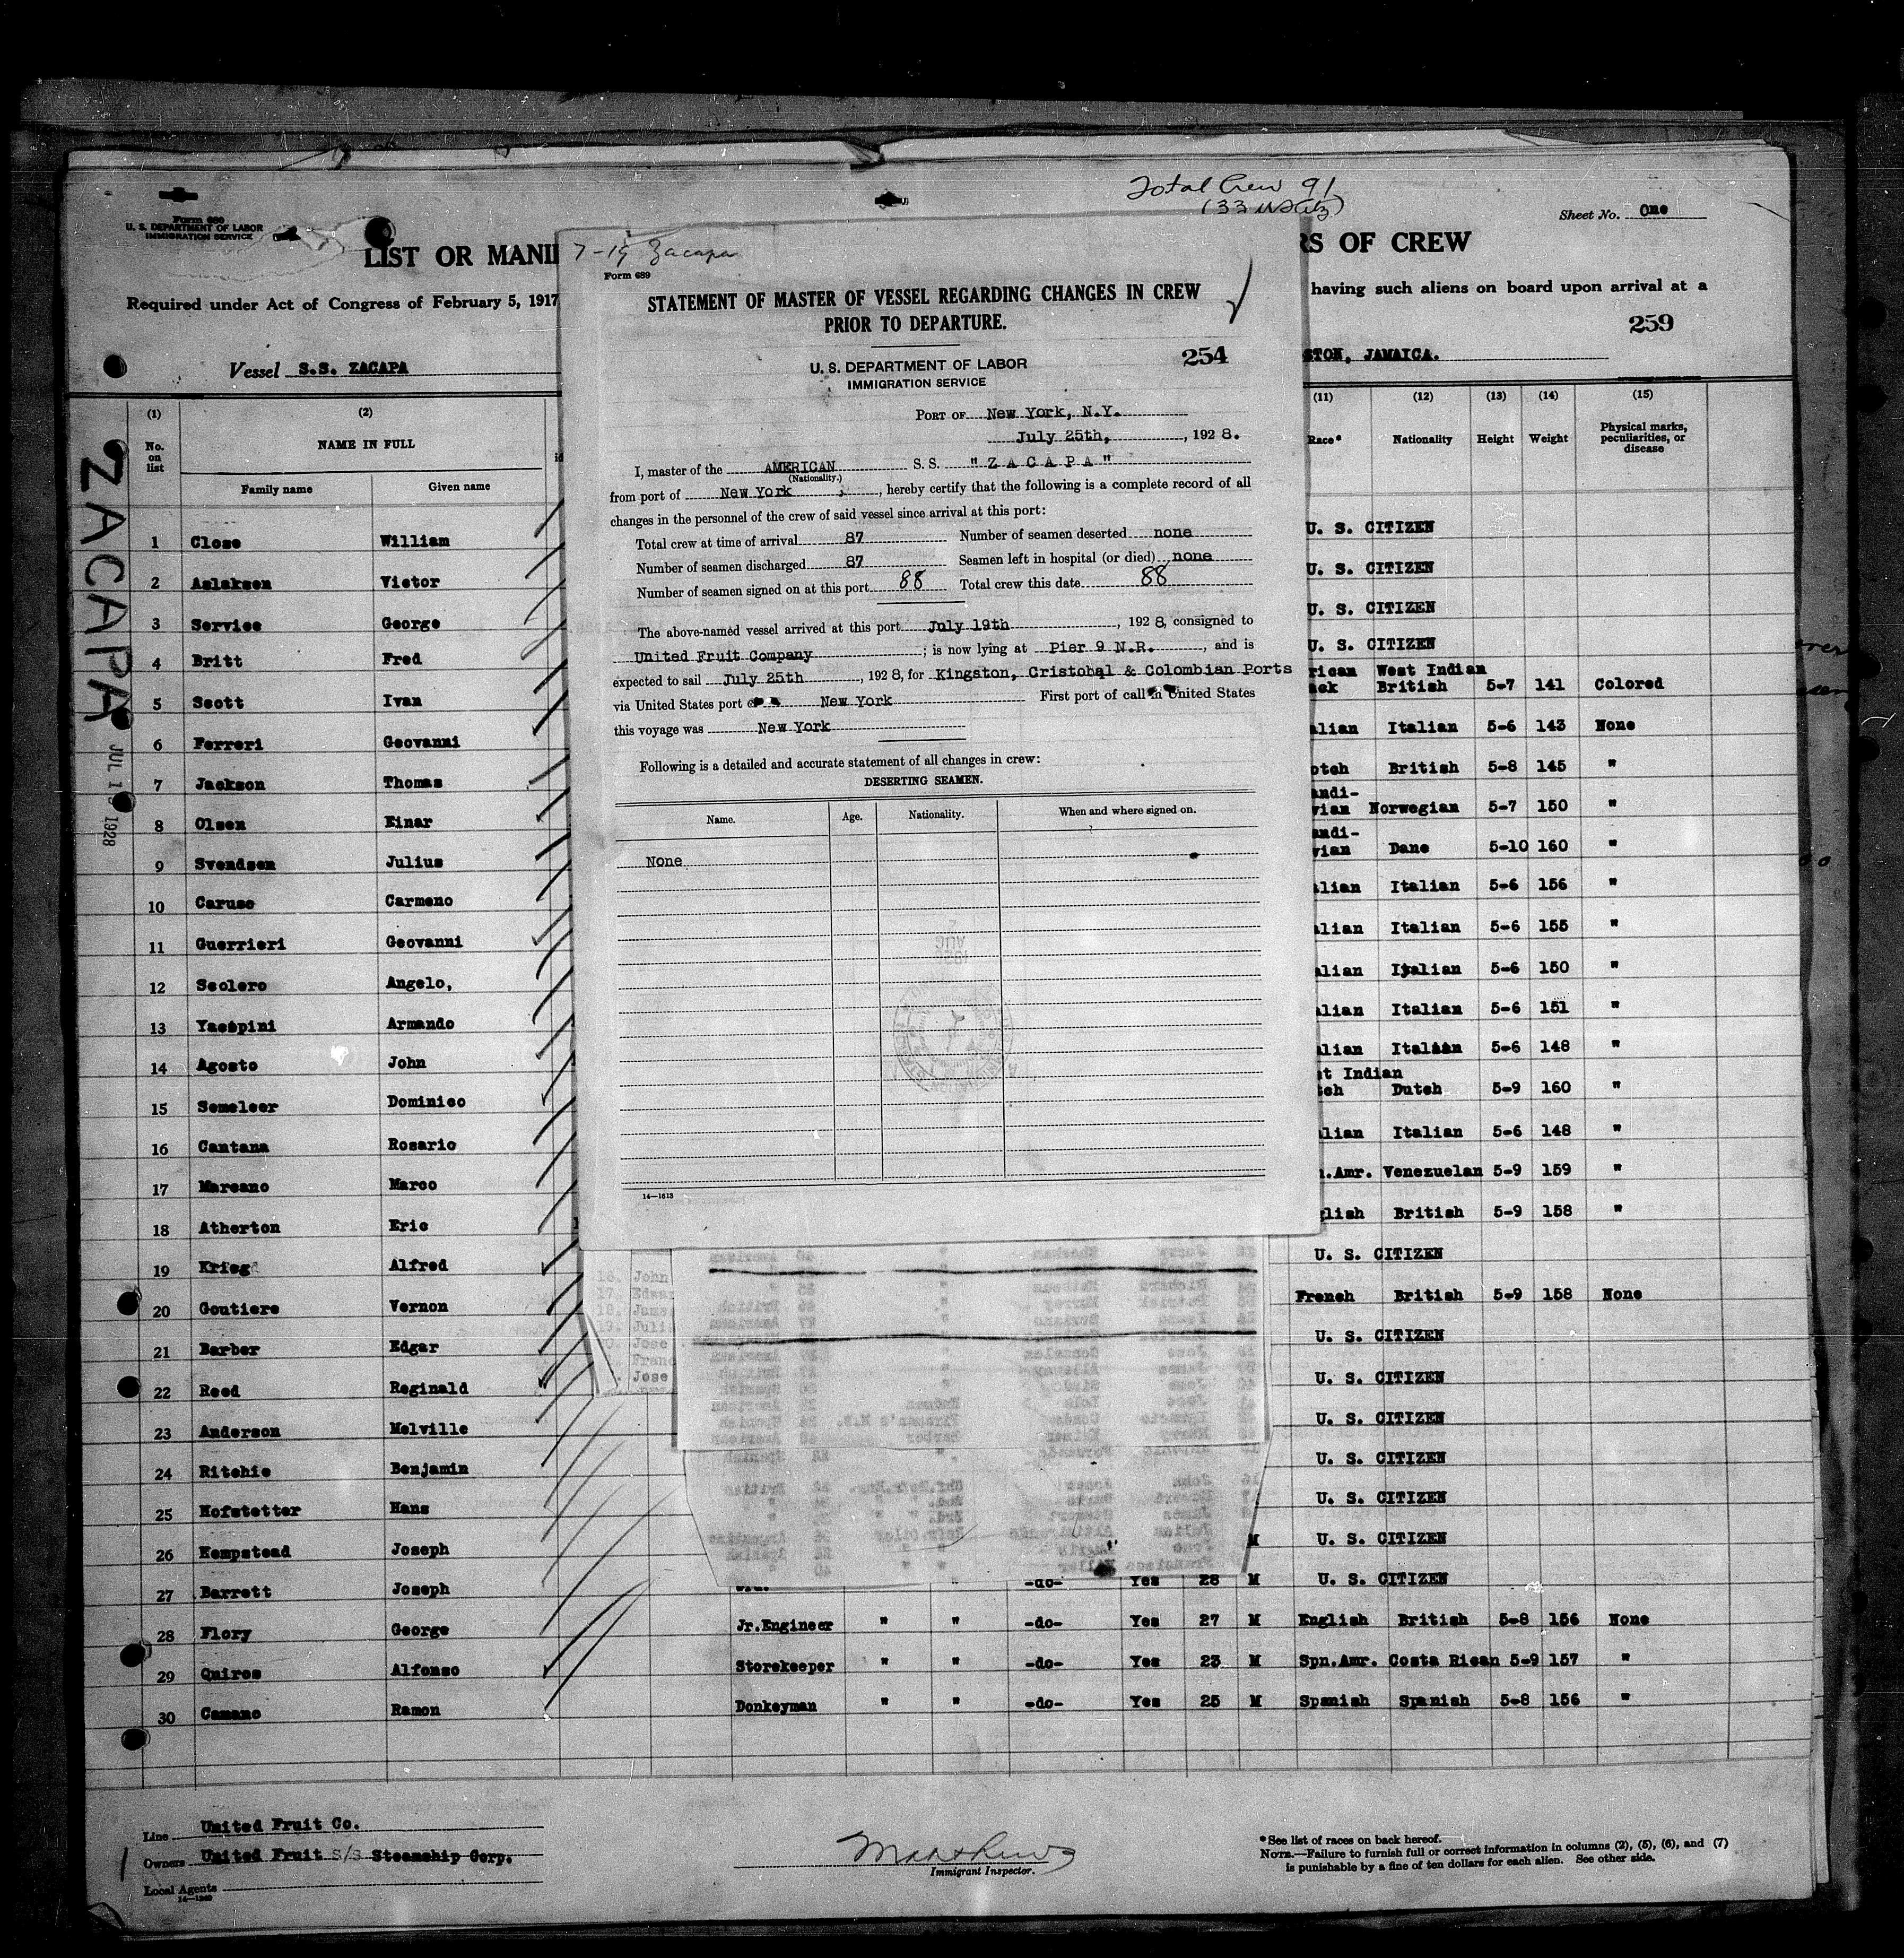 Total Crew 91
Form 689
U. S. DEPARTMENT OF LABOR
IMMIGRATION SERVICE
Sheet No. One
LIST OR MANI
RS OF CREW
Required under Act of Congress of February 5, 1917
having such aliens on board upon arrival at a
259
Vessel S.S. ZACAPA
STON, JAMAICA.
7-19 Zacapa
Form 689
STATEMENT OF MASTER OF VESSEL REGARDING CHANGES IN CREW
PRIOR TO DEPARTURE.
U. S. DEPARTMENT OF LABOR
IMMIGRATION SERVICE
254
PORT OF New York, N.Y.
July 25th, , 1928.
I, master of the AMERICAN S. S. "Z A C A P A"
(Nationality.)
from port of New York , hereby certify that the following is a complete record of all
changes in the personnel of the crew of said vessel since arrival at this port:
Total crew at time of arrival 87 Number of seamen deserted none
Number of seamen discharged 87 Seamen left in hospital (or died) none
Number of seamen signed on at this port 88 Total crew this date 88
The above-named vessel arrived at this port July 19th , 1928, consigned to
United Fruit Company ; is now lying at Pier 9 N.R. , and is
expected to sail July 25th , 1928, for Kingston, Cristobal & Colombian Ports
via United States port New York First port of call in United States
this voyage was New York
Following is a detailed and accurate statement of all changes in crew:
DESERTING SEAMEN.
Name. Age. Nationality. When and where signed on.
None
14—1613
ZACAPA
JUL 19 1928
(1) (2) (11) (12) (13) (14) (15)
No. on list NAME IN FULL Race* Nationality Height Weight Physical marks, peculiarities, or disease
Family name Given name
1 Close William U. S. CITIZEN
2 Aslaksen Victor U. S. CITIZEN
3 Service George U. S. CITIZEN
4 Britt Fred U. S. CITIZEN
rican West Indian
5 Scott Ivan British 5-7 141 Colored
6 Ferreri Geovanni alian Italian 5-6 143 None
7 Jackson Thomas otch British 5-8 145 "
andi-
8 Olsen Einar vian Norwegian 5-7 150 "
andi-
9 Svendsen Julius vian Dane 5-10 160 "
10 Caruso Carmeno alian Italian 5-6 156 "
11 Guerrieri Geovanni alian Italian 5-6 155 "
12 Scolero Angelo, alian Italian 5-6 150 "
13 Yacopini Armando alian Italian 5-6 151 "
14 Agosto John alian Italian 5-6 148 "
st Indian
15 Semeleer Dominico Dutch 5-9 160 "
16 Cantana Rosario alian Italian 5-6 148 "
17 Marcano Marco n.Amr. Venezuelan 5-9 159 "
18 Atherton Eric glish British 5-9 158 "
19 Krieg Alfred U. S. CITIZEN
20 Goutiere Vernon French British 5-9 158 None
21 Barber Edgar U. S. CITIZEN
22 Reed Reginald U. S. CITIZEN
23 Anderson Melville U. S. CITIZEN
24 Ritchie Benjamin U. S. CITIZEN
25 Hofstetter Hans U. S. CITIZEN
26 Hempstead Joseph M U. S. CITIZEN
27 Barrett Joseph " -do- Yes 28 M U. S. CITIZEN
28 Flory George Jr.Engineer " " -do- Yes 27 M English British 5-8 156 None
29 Quiros Alfonso Storekeeper " " -do- Yes 23 M Spn.Amr. Costa Rican 5-9 157 "
30 Camano Ramon Donkeyman " " -do- Yes 25 M Spanish Spanish 5-8 156 "
16. John
17. Edwar
18. James
19. Juli
Jose
Franc
Jose
Line United Fruit Co.
Owners United Fruit S/S Steamship Corp.
Local Agents
14—1240
Immigrant Inspector.
*See list of races on back hereof.
NOTE.—Failure to furnish full or correct information in columns (2), (5), (6), and (7)
is punishable by a fine of ten dollars for each alien. See other side.